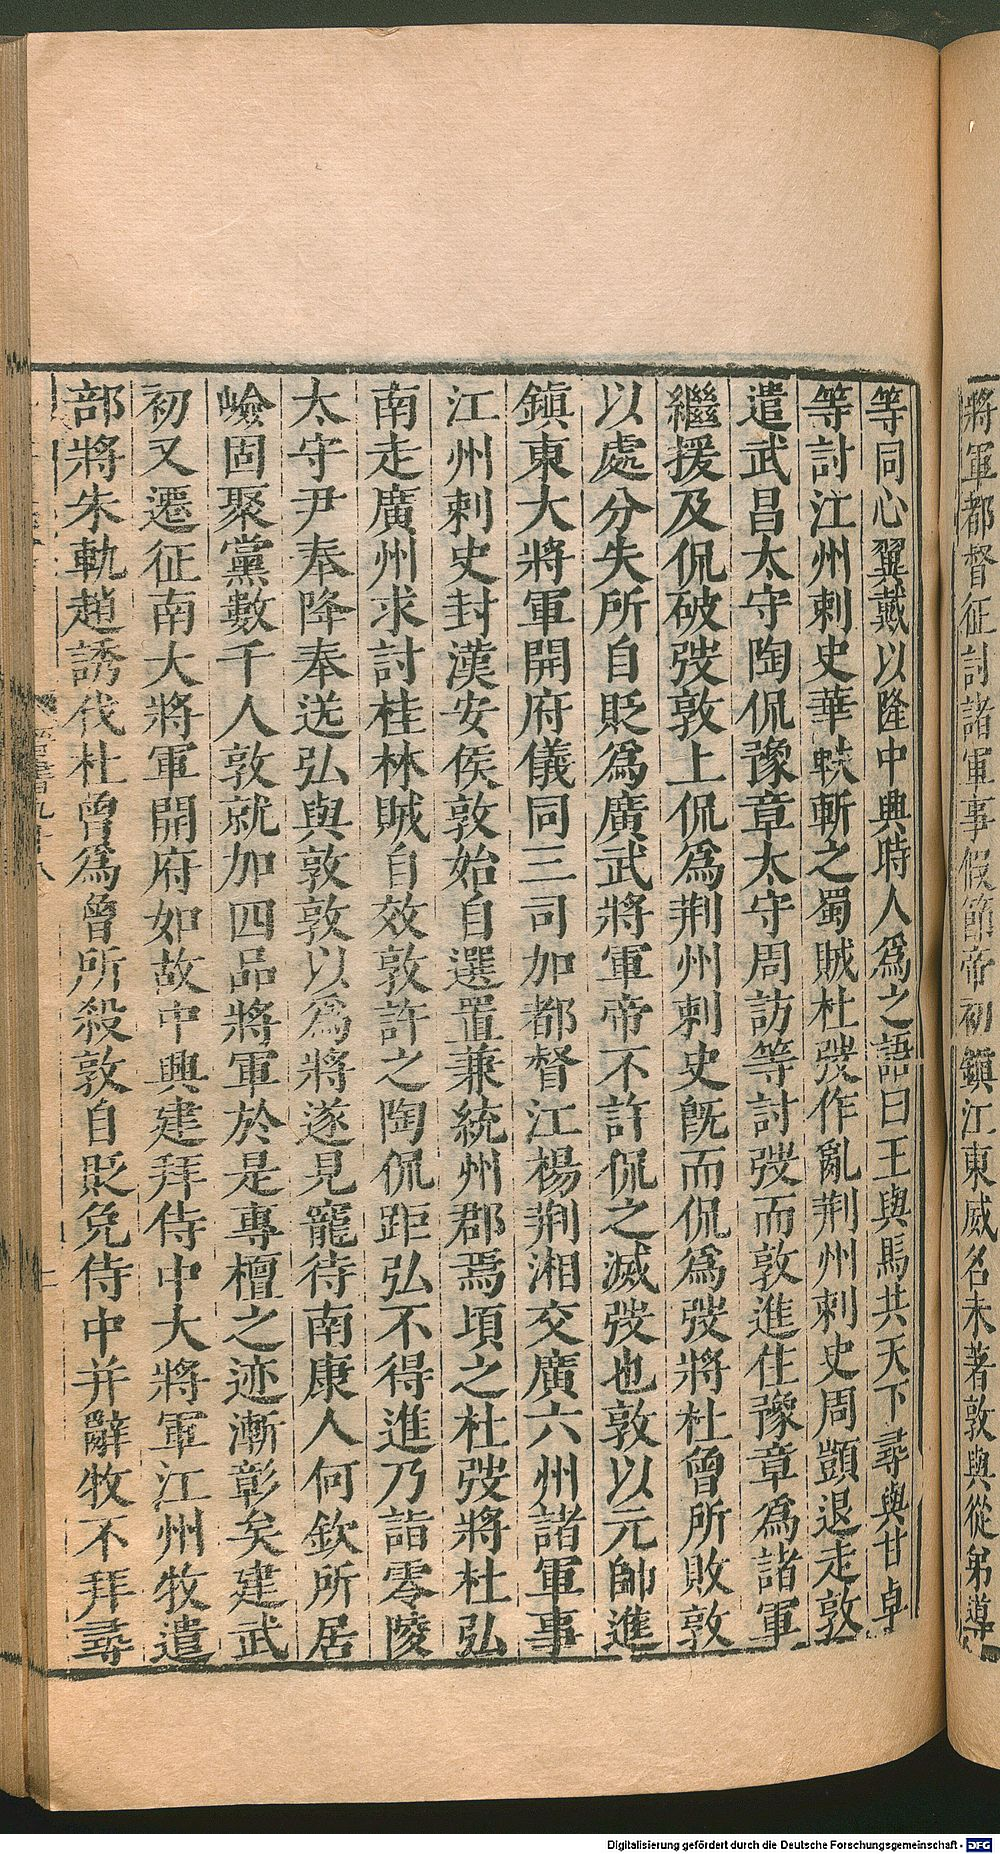 將軍都督征討諸軍事假節帝初鎮江東威名未著敦與從弟導
等同心翼戴以隆中興時人爲之語曰王與馬共天下尋與甘卓
等討江州刺史華軼斬之蜀賊杜弢作亂荆州刺史周顗退走敦
遣武昌太守陶侃豫章太守周訪等討弢而敦進住豫章爲諸軍
繼援及侃破弢敦上侃爲荆州刺史旣而侃爲弢將杜曾所敗敦
以處分失所自貶爲廣武將軍帝不許侃之滅弢也敦以元帥進
鎮東大將軍開府儀同三司加都督江楊荆湘交廣六州諸軍事
江州刺史封漢安侯敦始自選置兼統州郡焉頃之杜弢將杜弘
南走廣州求討桂林賊自效敦許之陶侃距弘不得進乃詣零陵
太守尹奉降奉送弘與敦敦以爲將遂見寵待南康人何欽所居
嶮固聚黨數千人敦就加四品將軍於是專擅之迹漸彰矣建武
初又遷征南大將軍開府如故中興建拜侍中大將軍江州牧遣
部將朱軌趙誘伐杜曾爲曾所殺敦自貶免侍中并辭牧不拜尋
Digitalisierung gefördert durch die Deutsche Forschungsgemeinschaft - DFG